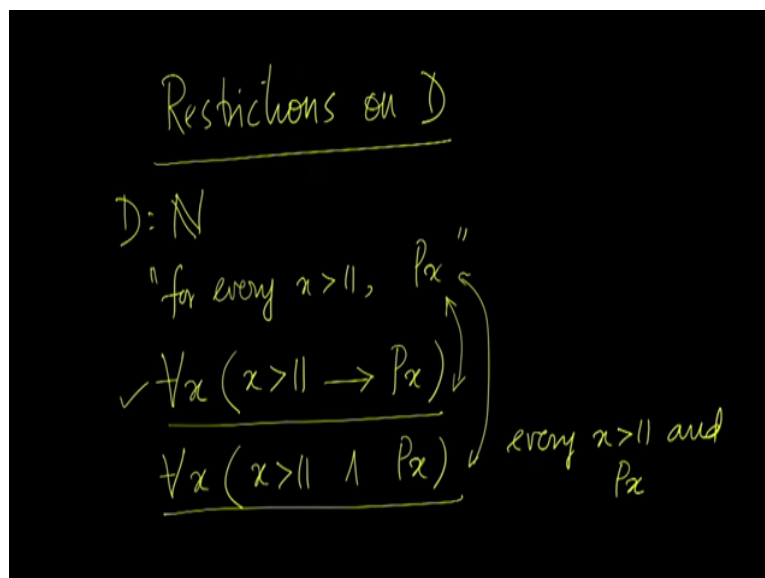 Restrictions on D
D: ℕ
"for every x > 11, Px"
✓ ∀x (x > 11 → Px)
∀x (x > 11 ∧ Px)
every x > 11 and
Px